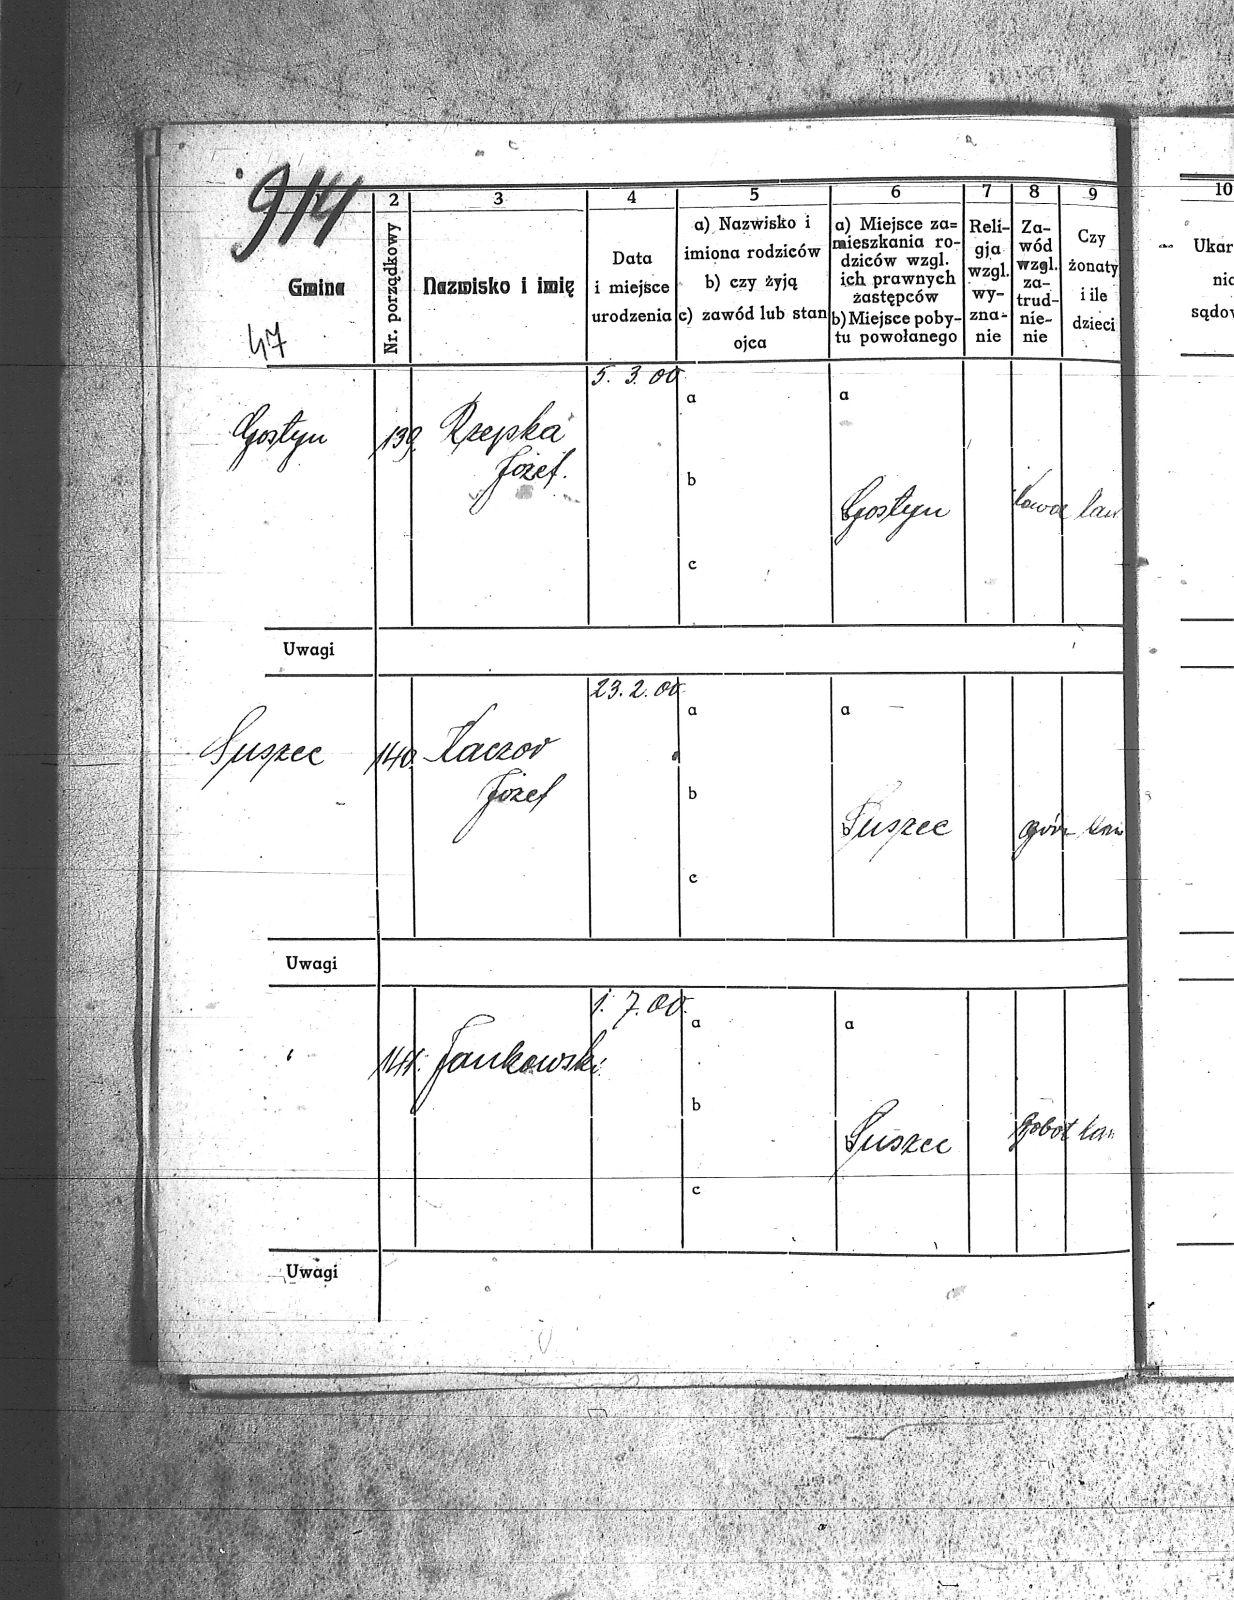 914
47
Gmina
2
Nr. porządkowy
3
Nazwisko i imię
4
Data
i miejsce
urodzenia
5
a) Nazwisko i
imiona rodziców
b) czy żyją
c) zawód lub stan
ojca
6
a) Miejsce za=
mieszkania ro-
dziców wzgl.
ich prawnych
zastępców
b) Miejsce poby-
tu powołanego
7
Reli-
gja
wzgl.
wy-
zna-
nie
8
Za-
wód
wzgl.
za-
trud-
nie-
nie
9
Czy
żonaty
i ile
dzieci
10
Ukar
nie
sądow
Gostyn
139.
Rzepka
Józef.
5. 3. 00
a
b
c
a
Gostyn
Uwagi
Suszec
140.
Kaczor
Józef
23. 2. 00
a
b
c
a
Suszec
Uwagi
141.
Jankowski
1. 7. 00.
a
b
c
a
Suszec
Robot
Uwagi